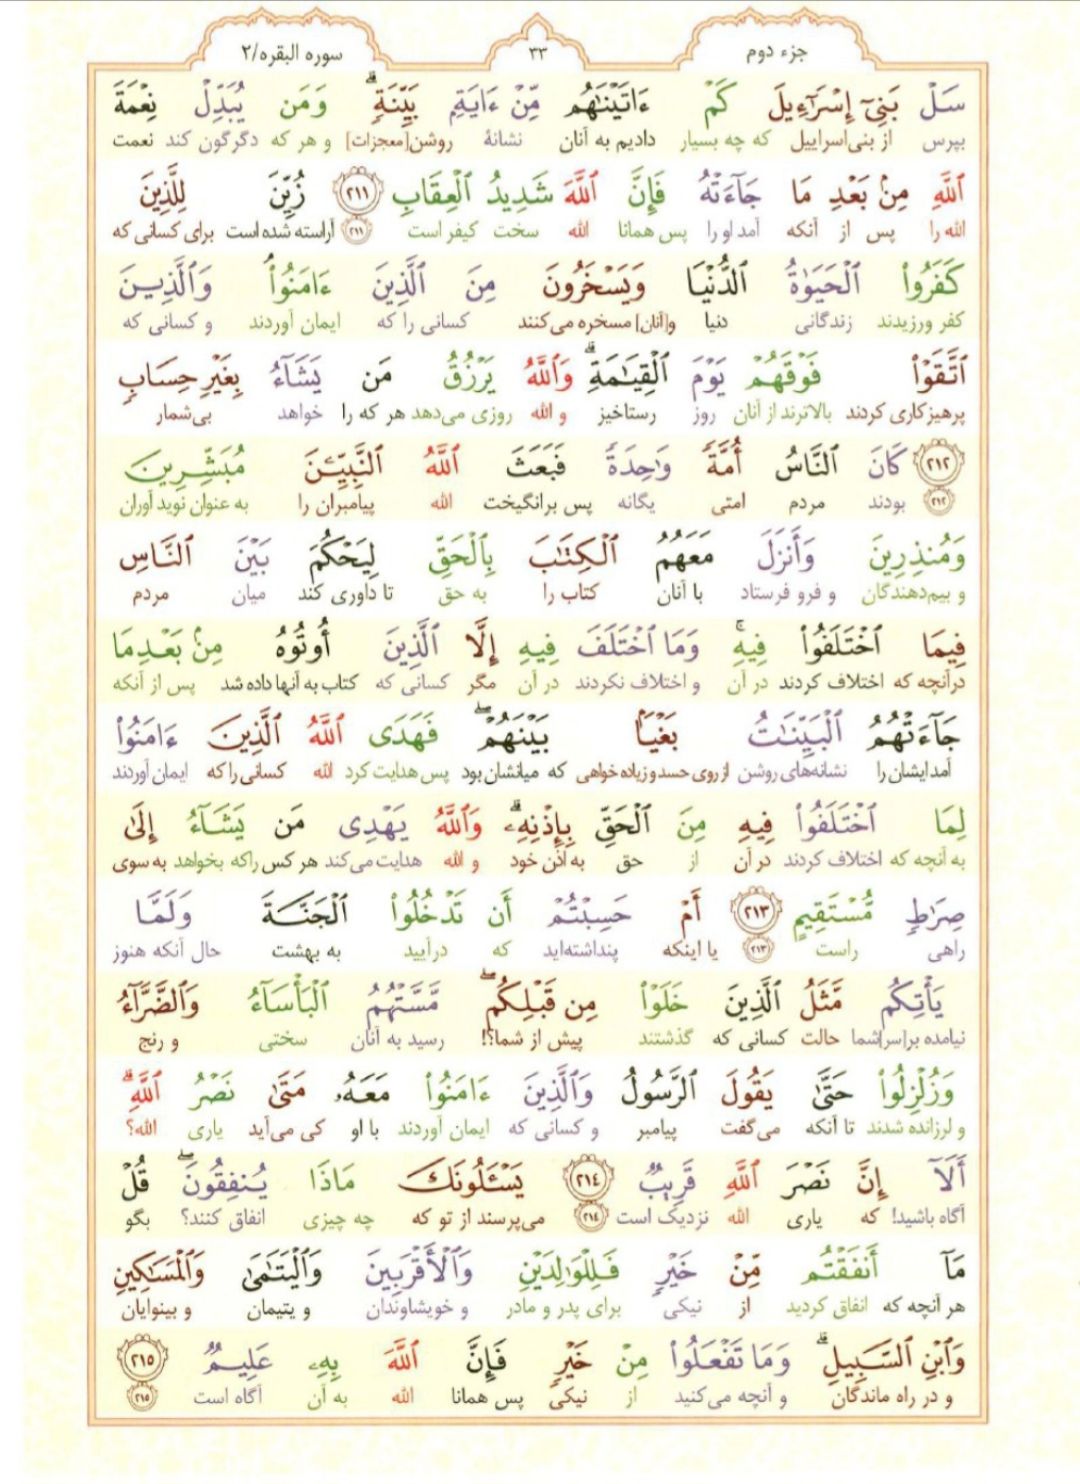 جزء دوم ۳۳ سوره البقره/۲
سَلْ بَنِىٓ إِسْرَٰٓءِيلَ كَمْ ءَاتَيْنَٰهُم مِّنْ ءَايَةٍۭ بَيِّنَةٍۗ وَمَن يُبَدِّلْ نِعْمَةَ
بپرس از بنی‌اسراییل که چه بسیار دادیم به آنان نشانهٔ روشن[معجزات] و هر که دگرگون کند نعمت
ٱللَّهِ مِنۢ بَعْدِ مَا جَآءَتْهُ فَإِنَّ ٱللَّهَ شَدِيدُ ٱلْعِقَابِ ۲۱۱ زُيِّنَ لِلَّذِينَ
الله را پس از آنکه آمد او را پس همانا الله سخت کیفر است ۲۱۱ آراسته شده است برای کسانی که
كَفَرُوا۟ ٱلْحَيَوٰةُ ٱلدُّنْيَا وَيَسْخَرُونَ مِنَ ٱلَّذِينَ ءَامَنُوا۟ۘ وَٱلَّذِينَ
کفر ورزیدند زندگانی دنیا و[آنان] مسخره می‌کنند کسانی را که ایمان آوردند و کسانی که
ٱتَّقَوْا۟ فَوْقَهُمْ يَوْمَ ٱلْقِيَٰمَةِۗ وَٱللَّهُ يَرْزُقُ مَن يَشَآءُ بِغَيْرِ حِسَابٍ
پرهیزکاری کردند بالاترند از آنان روز رستاخیز و الله روزی می‌دهد هر که را خواهد بی‌شمار
۲۱۲ كَانَ ٱلنَّاسُ أُمَّةً وَٰحِدَةً فَبَعَثَ ٱللَّهُ ٱلنَّبِيِّۦنَ مُبَشِّرِينَ
۲۱۲ بودند مردم امتی یگانه پس برانگیخت الله پیامبران را به عنوان نوید آوران
وَمُنذِرِينَ وَأَنزَلَ مَعَهُمُ ٱلْكِتَٰبَ بِٱلْحَقِّ لِيَحْكُمَ بَيْنَ ٱلنَّاسِ
و بیم‌دهندگان و فرو فرستاد با آنان کتاب را به حق تا داوری کند میان مردم
فِيمَا ٱخْتَلَفُوا۟ فِيهِۚ وَمَا ٱخْتَلَفَ فِيهِ إِلَّا ٱلَّذِينَ أُوتُوهُ مِنۢ بَعْدِ مَا
درآنچه که اختلاف کردند در آن و اختلاف نکردند در آن مگر کسانی که کتاب به آنها داده شد پس از آنکه
جَآءَتْهُمُ ٱلْبَيِّنَٰتُ بَغْيًۢا بَيْنَهُمْۖ فَهَدَى ٱللَّهُ ٱلَّذِينَ ءَامَنُوا۟
آمد ایشان را نشانه‌های روشن از روی حسد و زیاده خواهی که میانشان بود پس هدایت کرد الله کسانی را که ایمان آوردند
لِمَا ٱخْتَلَفُوا۟ فِيهِ مِنَ ٱلْحَقِّ بِإِذْنِهِۦۗ وَٱللَّهُ يَهْدِى مَن يَشَآءُ إِلَىٰ
به آنچه که اختلاف کردند در آن از حق به اذن خود و الله هدایت می‌کند هر کس راکه بخواهد به سوی
صِرَٰطٍ مُّسْتَقِيمٍ ۲۱۳ أَمْ حَسِبْتُمْ أَن تَدْخُلُوا۟ ٱلْجَنَّةَ وَلَمَّا
راهی راست ۲۱۳ یا اینکه پنداشته‌اید که درآیید به بهشت حال آنکه هنوز
يَأْتِكُم مَّثَلُ ٱلَّذِينَ خَلَوْا۟ مِن قَبْلِكُمۖ مَّسَّتْهُمُ ٱلْبَأْسَآءُ وَٱلضَّرَّآءُ
نیامده بر[سر]شما حالت کسانی که گذشتند پیش از شما؟! رسید به آنان سختی و رنج
وَزُلْزِلُوا۟ حَتَّىٰ يَقُولَ ٱلرَّسُولُ وَٱلَّذِينَ ءَامَنُوا۟ مَعَهُۥ مَتَىٰ نَصْرُ ٱللَّهِۗ
و لرزانده شدند تا آنکه می‌گفت پیامبر و کسانی که ایمان آوردند با او کی می‌آید یاری الله؟
أَلَآ إِنَّ نَصْرَ ٱللَّهِ قَرِيبٌ ۲۱٤ يَسْـَٔلُونَكَ مَاذَا يُنفِقُونَۖ قُلْ
آگاه باشید! که یاری الله نزدیک است ۲۱٤ می‌پرسند از تو که چه چیزی انفاق کنند؟ بگو
مَآ أَنفَقْتُم مِّنْ خَيْرٍ فَلِلْوَٰلِدَيْنِ وَٱلْأَقْرَبِينَ وَٱلْيَتَٰمَىٰ وَٱلْمَسَٰكِينِ
هر آنچه که انفاق کردید از نیکی برای پدر و مادر و خویشاوندان و یتیمان و بینوایان
وَٱبْنِ ٱلسَّبِيلِۗ وَمَا تَفْعَلُوا۟ مِنْ خَيْرٍ فَإِنَّ ٱللَّهَ بِهِۦ عَلِيمٌ ۲۱٥
و در راه ماندگان و آنچه می‌کنید از نیکی پس همانا الله به آن آگاه است ۲۱٥